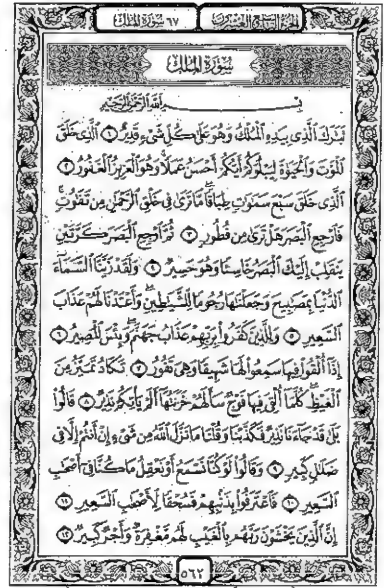 الجزء التاسع والعشرون
٦٧ سورة الملك
سُورَةُ المُلْكِ
بِسْمِ اللَّهِ الرَّحْمَٰنِ الرَّحِيمِ
تَبَٰرَكَ ٱلَّذِى بِيَدِهِ ٱلْمُلْكُ وَهُوَ عَلَىٰ كُلِّ شَىْءٍ قَدِيرٌ ١ ٱلَّذِى خَلَقَ
ٱلْمَوْتَ وَٱلْحَيَوٰةَ لِيَبْلُوَكُمْ أَيُّكُمْ أَحْسَنُ عَمَلًا وَهُوَ ٱلْعَزِيزُ ٱلْغَفُورُ ٢
ٱلَّذِى خَلَقَ سَبْعَ سَمَٰوَٰتٍ طِبَاقًا مَّا تَرَىٰ فِى خَلْقِ ٱلرَّحْمَٰنِ مِن تَفَٰوُتٍ
فَٱرْجِعِ ٱلْبَصَرَ هَلْ تَرَىٰ مِن فُطُورٍ ٣ ثُمَّ ٱرْجِعِ ٱلْبَصَرَ كَرَّتَيْنِ
يَنقَلِبْ إِلَيْكَ ٱلْبَصَرُ خَاسِئًا وَهُوَ حَسِيرٌ ٤ وَلَقَدْ زَيَّنَّا ٱلسَّمَآءَ
ٱلدُّنْيَا بِمَصَٰبِيحَ وَجَعَلْنَٰهَا رُجُومًا لِّلشَّيَٰطِينِ وَأَعْتَدْنَا لَهُمْ عَذَابَ
ٱلسَّعِيرِ ٥ وَلِلَّذِينَ كَفَرُوا۟ بِرَبِّهِمْ عَذَابُ جَهَنَّمَ وَبِئْسَ ٱلْمَصِيرُ ٦
إِذَآ أُلْقُوا۟ فِيهَا سَمِعُوا۟ لَهَا شَهِيقًا وَهِىَ تَفُورُ ٧ تَكَادُ تَمَيَّزُ مِنَ
ٱلْغَيْظِ كُلَّمَآ أُلْقِىَ فِيهَا فَوْجٌ سَأَلَهُمْ خَزَنَتُهَآ أَلَمْ يَأْتِكُمْ نَذِيرٌ ٨ قَالُوا۟
بَلَىٰ قَدْ جَآءَنَا نَذِيرٌ فَكَذَّبْنَا وَقُلْنَا مَا نَزَّلَ ٱللَّهُ مِن شَىْءٍ إِنْ أَنتُمْ إِلَّا فِى
ضَلَٰلٍ كَبِيرٍ ٩ وَقَالُوا۟ لَوْ كُنَّا نَسْمَعُ أَوْ نَعْقِلُ مَا كُنَّا فِىٓ أَصْحَٰبِ
ٱلسَّعِيرِ ١٠ فَٱعْتَرَفُوا۟ بِذَنۢبِهِمْ فَسُحْقًا لِّأَصْحَٰبِ ٱلسَّعِيرِ ١١
إِنَّ ٱلَّذِينَ يَخْشَوْنَ رَبَّهُم بِٱلْغَيْبِ لَهُم مَّغْفِرَةٌ وَأَجْرٌ كَبِيرٌ ١٢
٥٦٢